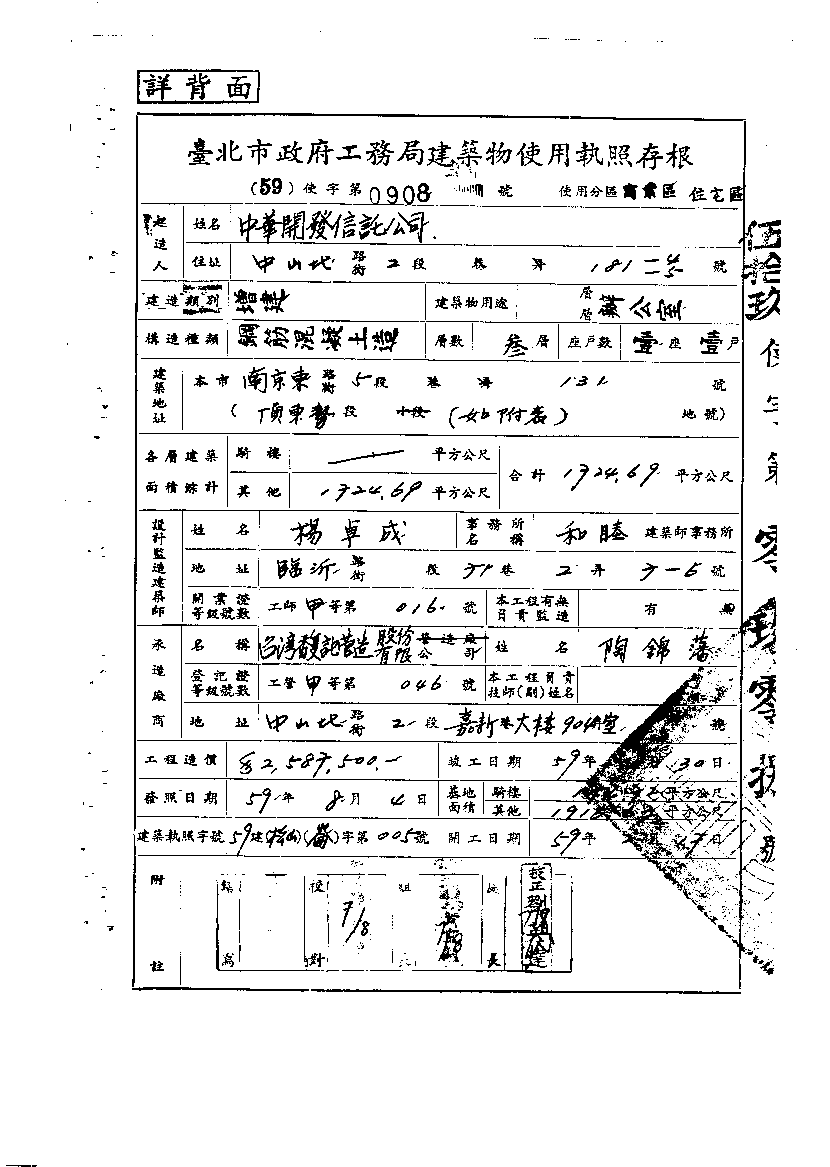 詳背面
臺北市政府工務局建築物使用執照存根
(59)使字第0908號 使用分區商業區 住宅區
起造人 姓名 中華開發信託公司
住址 中山北路街2段 巷 弄 181 號
建造類別 增建 建築物用途 層層 辦公室
構造種類 鋼筋混凝土造 層數 叁層 座戶數 壹座 壹戶
建築地址 本市 南京東路街5段 巷 弄 131 號
(頂東勢段 小段 (如附表) 地號)
各層建築面積綜計 騎樓 平方公尺 合計 1724.69 平方公尺
其他 1724.69 平方公尺
設計監造建築師 姓名 楊卓成 事務所名稱 和睦 建築師事務所
地址 臨沂路街 段 巷 2弄 號
開業證等級號數 工師甲等第 016 號 本工程有無負責監造 有 無
承造廠商 名稱 股份有限 營造廠公司 姓名 陶錦藩
登記證等級號數 工營甲等第 046 號 本工程負責技師(副)姓名
地址 中山北路街2段 嘉新大樓904室 號
工程造價 2,587,500.- 竣工日期 59年 30日
發照日期 59年 8月 4日 基地面積 騎樓 平方公尺
其他 平方公尺
建築執照字號 59建(松山)( )字第005號 開工日期 59年 日
附註 繕寫 校對 7/8 組長 長
伍拾玖使字第零玖零捌號